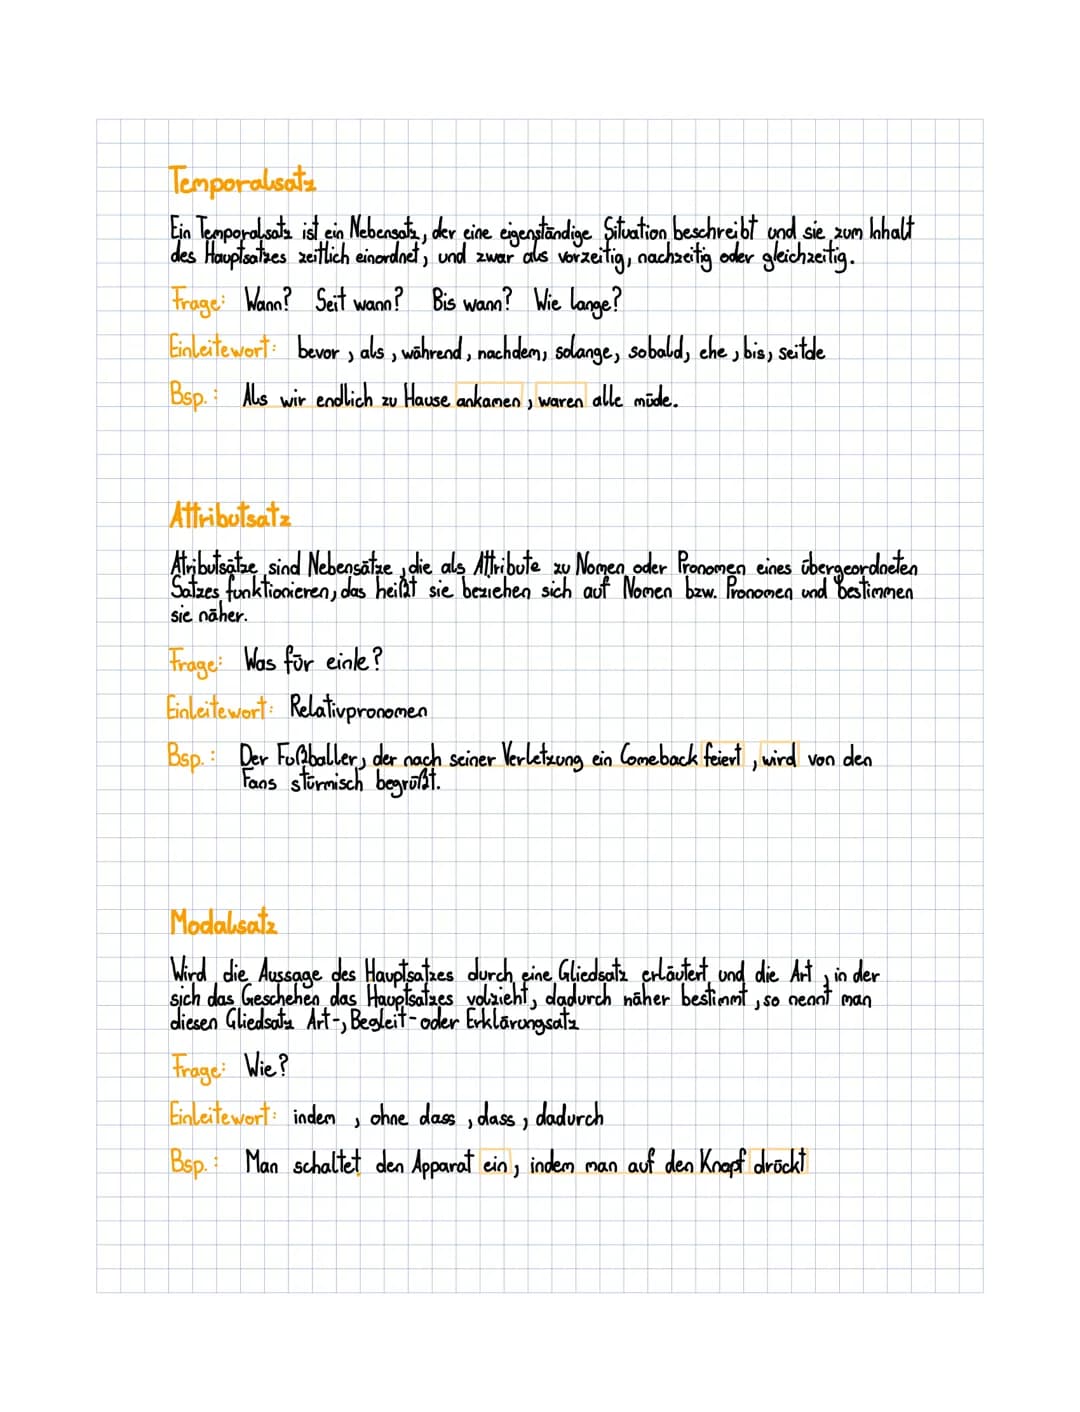 Temporalsatz
Ein Temporalsatz ist ein Nebensatz, der eine eigenständige Situation beschreibt und sie zum Inhalt
des Hauptsatzes zeitlich einordnet, und zwar als vorzeitig, nachzeitig oder gleichzeitig.
Frage: Wann? Seit wann? Bis wann? Wie lange?
Einleitewort: bevor, als, während, nachdem, solange, sobald, ehe, bis, seitde
Bsp.: Als wir endlich zu Hause ankamen, waren alle müde.
Attributsatz
Atributsätze sind Nebensätze, die als Attribute zu Nomen oder Pronomen eines übergeordneten
Satzes funktionieren, das heißt sie beziehen sich auf Nomen bzw. Pronomen und bestimmen
sie näher.
Frage: Was für ein/e?
Einleitewort: Relativpronomen
Bsp.: Der Fußballer, der nach seiner Verletzung ein Comeback feiert, wird von den
Fans stürmisch begrüßt.
Modalsatz
Wird die Aussage des Hauptsatzes durch eine Gliedsatz erläutert und die Art, in der
sich das Geschehen das Hauptsatzes volzieht, dadurch näher bestimmt, so nennt man
diesen Gliedsatz Art-, Begleit- oder Erklärungsatz
Frage: Wie?
Einleitewort: indem, ohne dass, dass, dadurch
Bsp.: Man schaltet den Apparat ein, indem man auf den Knopf drückt